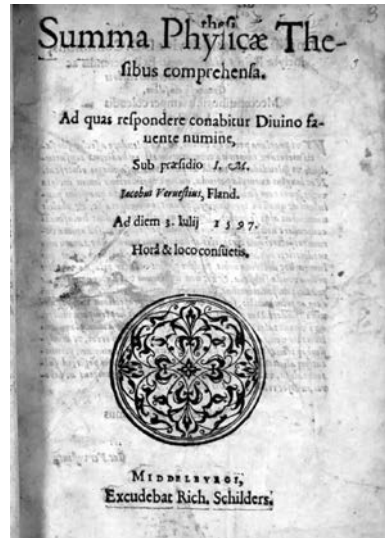 thesi.
3
Summa Phyſicæ The-
ſibus comprehenſa.
Ad quas reſpondere conabitur Diuino fa-
uente numine,
Sub præſidio I. M.
Iacobus Verueſtius, Fland.
Ad diem 3. Iulij 1597.
Horâ & loco conſuetis.
MIDDELBVRGI,
Excudebat Rich. Schilders.